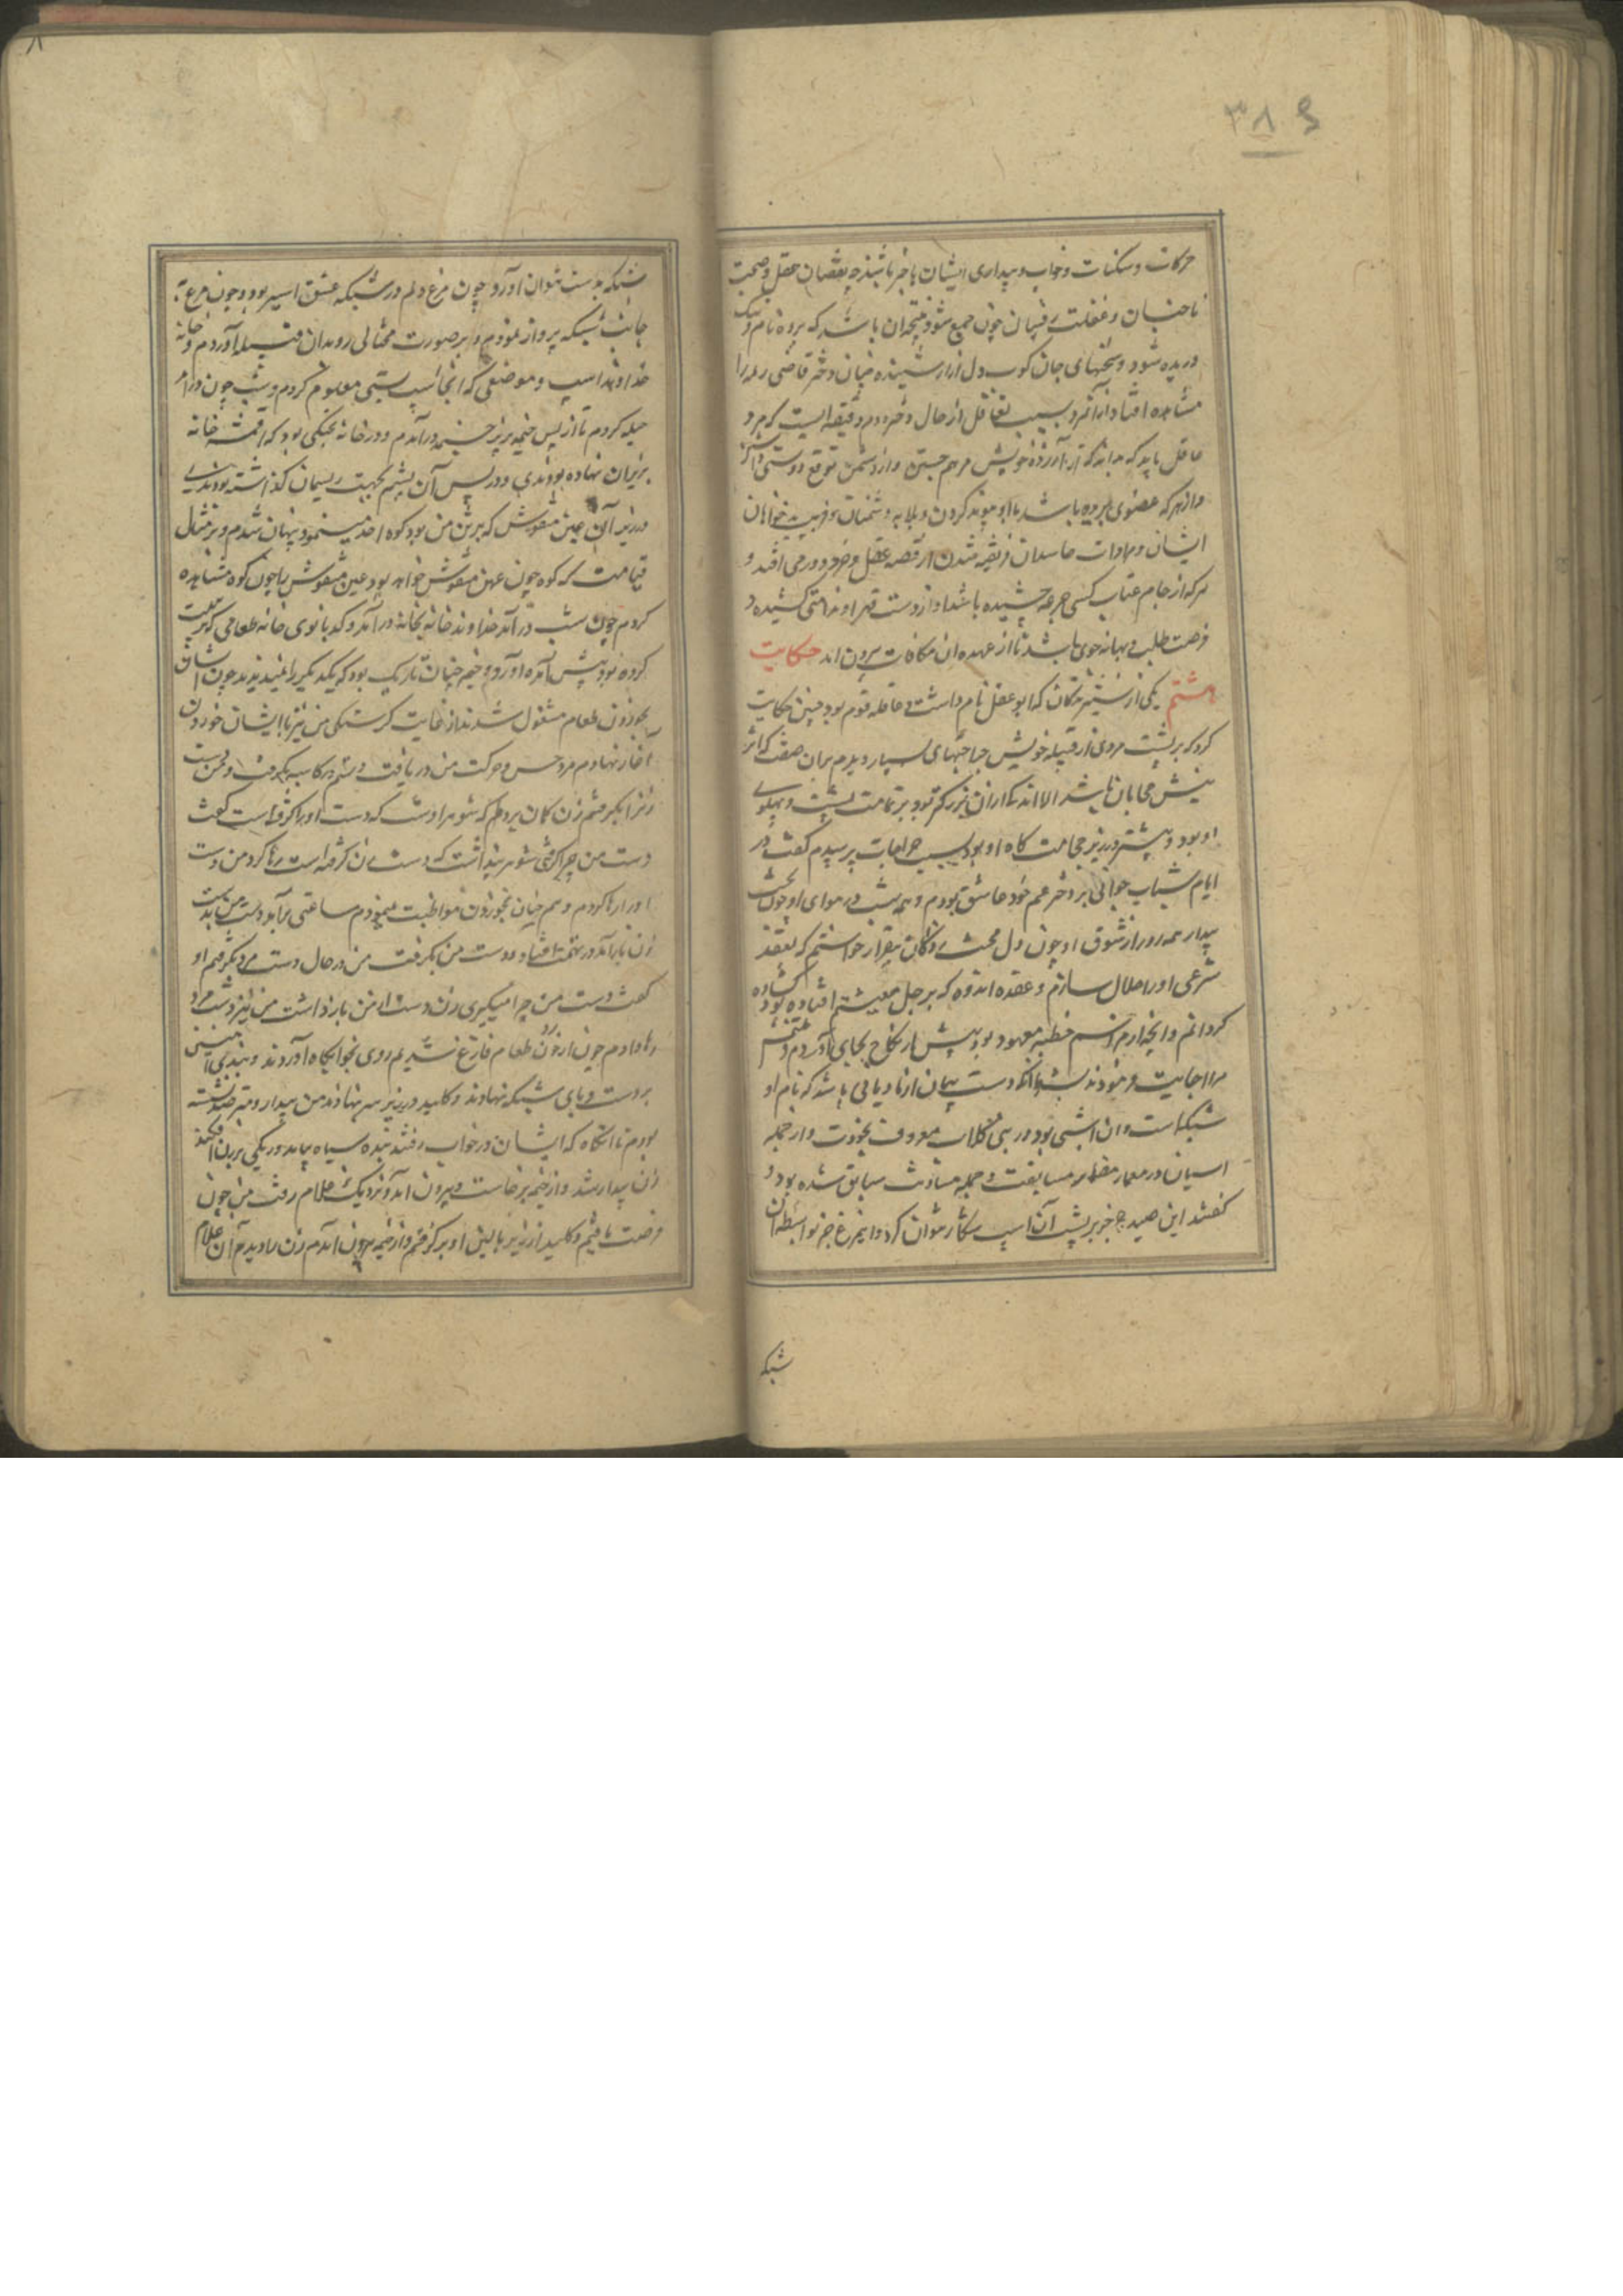 ۳۸۶
حرکات و سکنات و خواب و بیداری ایشان باخبر باشند چه نقصان عقل و صحبت
ناجنسان و غفلت رقیبان چون جمع شود نتیجه آن باشد که پرده نام و ننگ
دریده شود و سخنهای جان کوب دل آزار شنیده
مشاهده افتاد از آنکه بسبب تغافل از حال دختر
عاقل باید که بداند که از آزرده خویش مرهم جستن و از دشمن توقع دوستی داشتن
و از هرکه عضوی بریده باشد با او پیوند کردن و بلابه دشمنان و فریب بدخواهان
ایشان و مهادات حاسدان فریفته شدن از قضیه عقل و خرد دور می افتد و
هرکه از جام عتاب کسی جرعه چشیده باشد و از دست قهر او ندامتی کشیده
فرصت طلب و بهانه جوی باشد تا از عهده آن مکافات بیرون آید حکایت
هشتم یکی از کدا بو عقل نام داشت و عاقله قوم بود چنین حکایت
کرد که بر پشت مردی از قبیله خویش جراحتهای بسیار دیدم بران صفت که اثر
نیش حجامان باشد الا آنکه از آن بزرگتر بود و بر تمامت پشت و پهلوی
او بود و بیشتر در زیر حجامت گاه او بود سبب جراحات پرسیدم گفت در
ایام شباب جوانی بر دختر عم خود عاشق بودم و همه شب در هوای او چون
بیدار همه روز از شوق او چون دل بیقرار خواستم که بعقد
شرعی او را حلال سازم و عقده اندوه که بر حبل معیشتم افتاده بود گشاده
گردانم و آنچه از مراسم خطبه معهود بود پیش از نکاح بجای آوردم و ملتمس
مرا اجابت فرمودند بشرط آنکه دست پیمان از مادیانی باشد که نام او
شبکه است و آن اسبی بود در بنی کلاب معروف بجودت و از جمله
اسبان در مضمار مسابقت و جمله سابق شده بود و
گفتند این صید جز بر پشت آن اسب شکار نتوان کرد و این مرغ جز بواسطه آن
شبکه
شبکه بدست نتوان آورد چون مرغ دلم در شبکه عشق اسیر بود چون مرغ
جانب شبکه پرواز نمودم و بر صورت محتالی روی بدان قبیله آوردم و خانه
خداوند اسب و موضعی که آنجا اسب بستی معلوم کردم و شب چون در آمد
حیله کردم تا از پس خیمه بزیر خیمه در آمدم و در خانه بود که اقمشه خانه
بر زبر آن نهاده بودندی و در پس آن پشم بجهت ریسمان گذاشته بودندی
در زیر آن عهن منفوش که بر تن من بود کوه احد مینمود پنهان شدم و بر مثال
قیامت که کوه چون عهن منفوش خواهد بود عهن منفوش را چون کوه مشاهده
کردم چون شب در آمد خداوند خانه بخانه در آمد و کدبانوی خانه طعامی که ترتیب
کرده بود پیش آورد و خیمه چنان تاریک بود که یکدیگر را نمیدیدند چون ایشان
بخوردن طعام مشغول شدند از غایت گرسنگی من نیز با ایشان خوردن
آغاز نهادم مرد حس و حرکت من دریافت و دستم در کاسه بگرفت و من دست
زنرا بگرفتم زن گمان برد که شوهر اوست که دست او را گرفته است گفت
دست من چرا گرفتی شوهر پنداشت که دست زن گرفته است رها کرد من دست
او را رها کردم و هم چنان بخوردن مواظبت مینمودم ساعتی برآمد دست من بدست
زن باز آمد در تهمت افتاد و دست من بگرفت من در حال دست مرد بگرفتم او
گفت دست من چرا میگیری زن دست از من باز داشت من نیز دست مرد
رها دادم چون از خوردن طعام فارغ شدیم روی بخوابگاه آوردند و بندی آهنین
بر دست و پای شبکه نهادند و کلید در زیر سر نهادند من بیدار و مترصد نشسته
بودم تا آنگاه که ایشان در خواب رفتند بنده سیاه بیامد و ریگی بر زن افکند
زن بیدار شد و از خیمه برخاست و بیرون آمد و نزدیک غلام رفت من چون
فرصت یافتم و کلید از زیر بالین او برگرفتم و از خیمه بیرون آمدم زن را دیدم با آن غلام